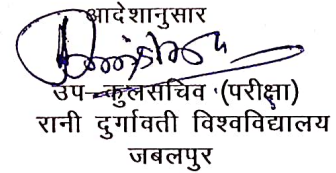 आदेशानुसार
उप-कुलसचिव (परीक्षा)
रानी दुर्गावती विश्वविद्यालय
जबलपुर